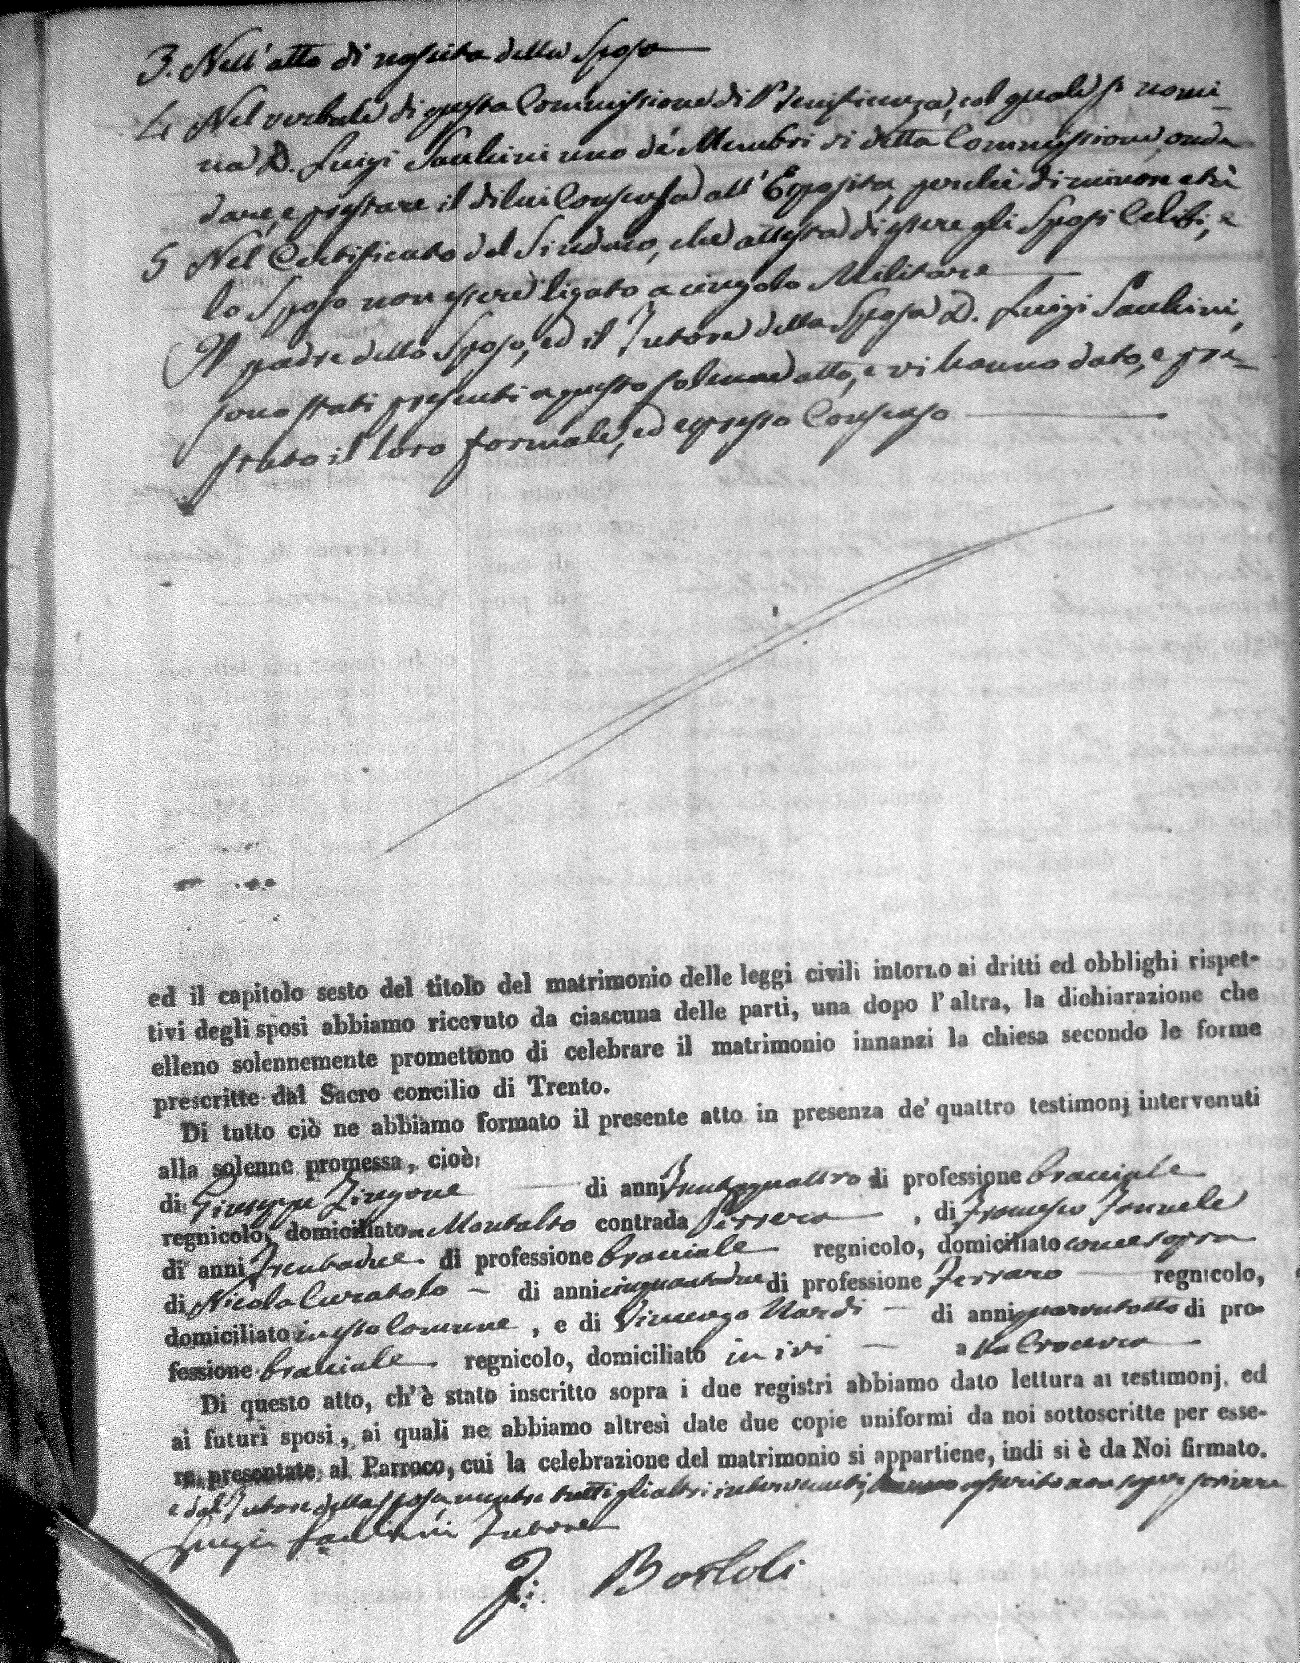 3. Nell'atto di nascita della Sposa
4 Nel verbale di questa Commissione di Beneficenza, col quale si nomi-
na D. Luigi Sacchini uno de' Membri di detta Commissione, onde
dare, e prestare il di lui Consenso all'Esposita, perchè di minore età
5 Nel Certificato del Sindaco, che attesta di essere gli Sposi Celibi, e
lo Sposo non essere ligato a cingolo Militare
Il padre dello Sposo, ed il Tutore della Sposa D. Luigi Sacchini,
sono stati presenti a questo solenne atto, e vi hanno dato, e pre-
stato il loro formale, ed espresso Consenso
ed il capitolo sesto del titolo del matrimonio delle leggi civili intorno ai dritti ed obblighi rispet-
tivi degli sposi abbiamo ricevuto da ciascuna delle parti, una dopo l'altra, la dichiarazione che
elleno solennemente promettono di celebrare il matrimonio innanzi la chiesa secondo le forme
prescritte dal Sacro concilio di Trento.
Di tutto ciò ne abbiamo formato il presente atto in presenza de' quattro testimonj intervenuti
alla solenne promessa, cioè:
di Giuseppe Zingone di anni trentaquattro di professione bracciale
regnicolo, domiciliato a Montalto contrada , di Francesco Iannele
di anni trentadue di professione bracciale regnicolo, domiciliato come sopra
di Nicola Curatolo di anni cinquantadue di professione Ferraro regnicolo,
domiciliato in questo Comune, e di Vincenzo Nardi di anni quarantotto di pro-
fessione bracciale regnicolo, domiciliato in ivi a
Di questo atto, ch'è stato inscritto sopra i due registri abbiamo dato lettura ai testimonj, ed
ai futuri sposi, ai quali ne abbiamo altresì date due copie uniformi da noi sottoscritte per esse-
re presentate al Parroco, cui la celebrazione del matrimonio si appartiene, indi si è da Noi firmato.
e dal Tutore della sposa, mentre tutti gli altri intervenuti hanno asserito non saper scrivere
Luigi Sacchini Tutore